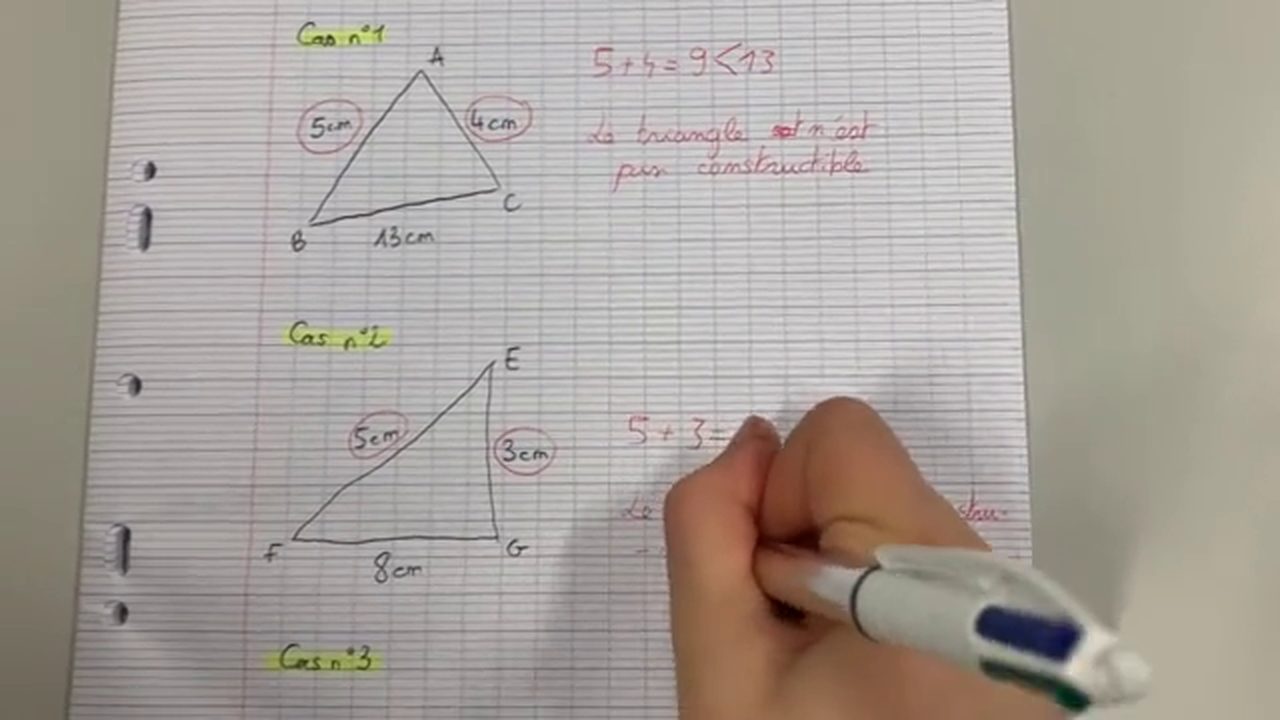 Cas n°1
A
5cm
4cm
B
13cm
C
5+4=9<13
Le triangle est n'est
pas constructible
Cas n°2
E
5cm
3cm
F
8cm
G
5+3=
Le
Cas n°3